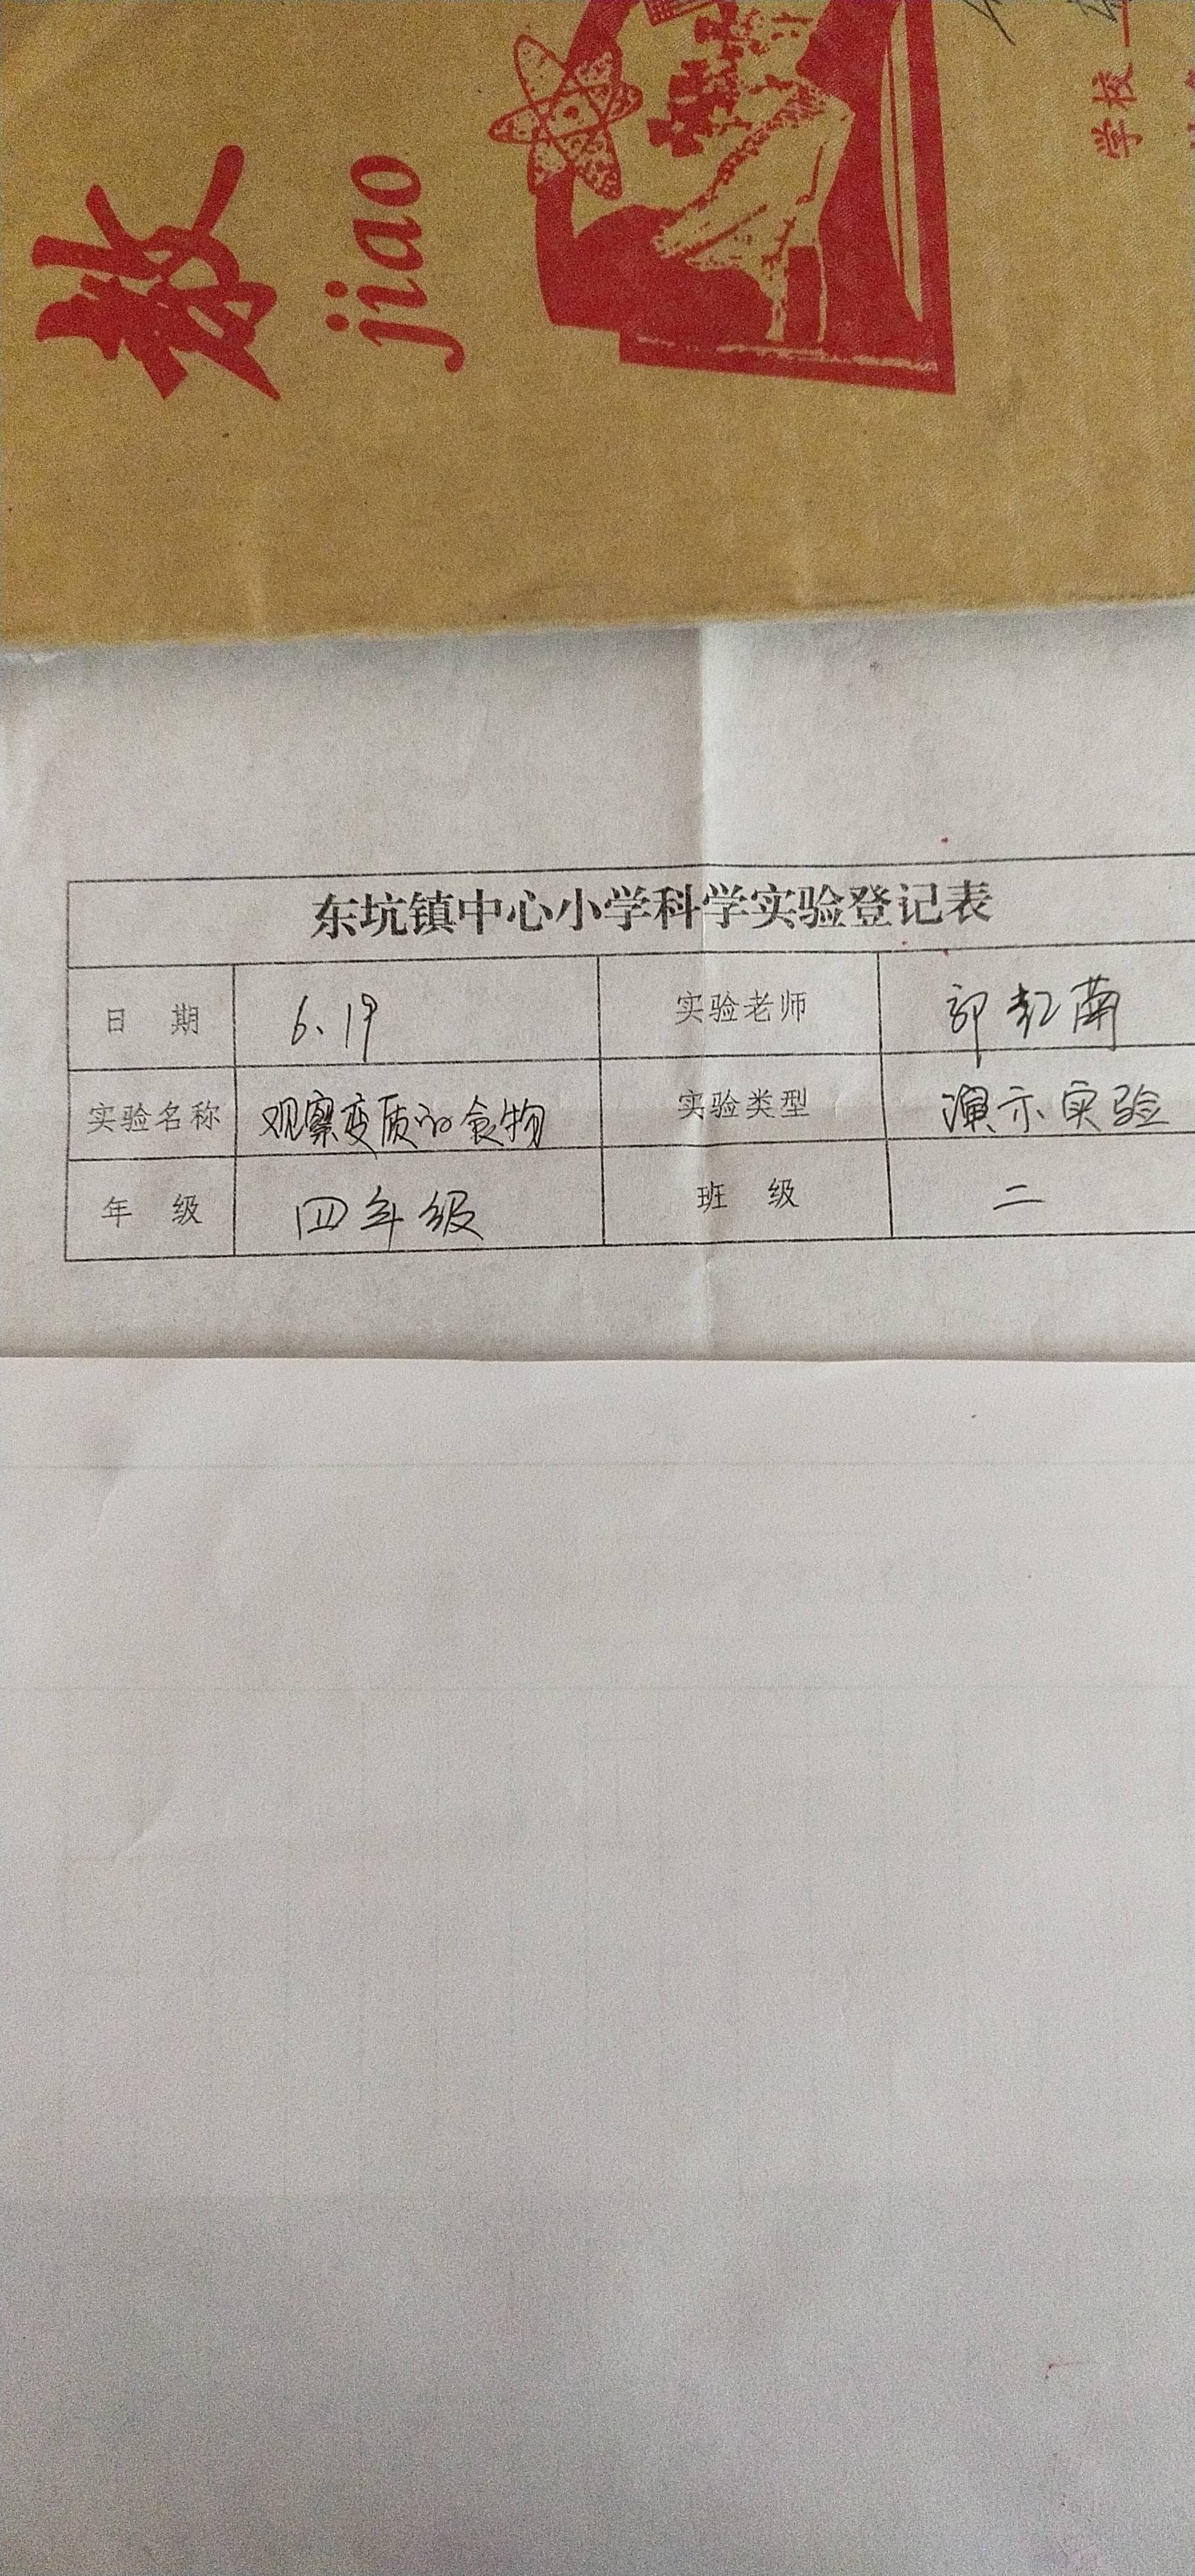 教
jiao
学校
东坑镇中心小学科学实验登记表
日 期 6.19 实验老师
实验名称 观察变质的食物 实验类型 演示实验
年 级 四年级 班 级 二